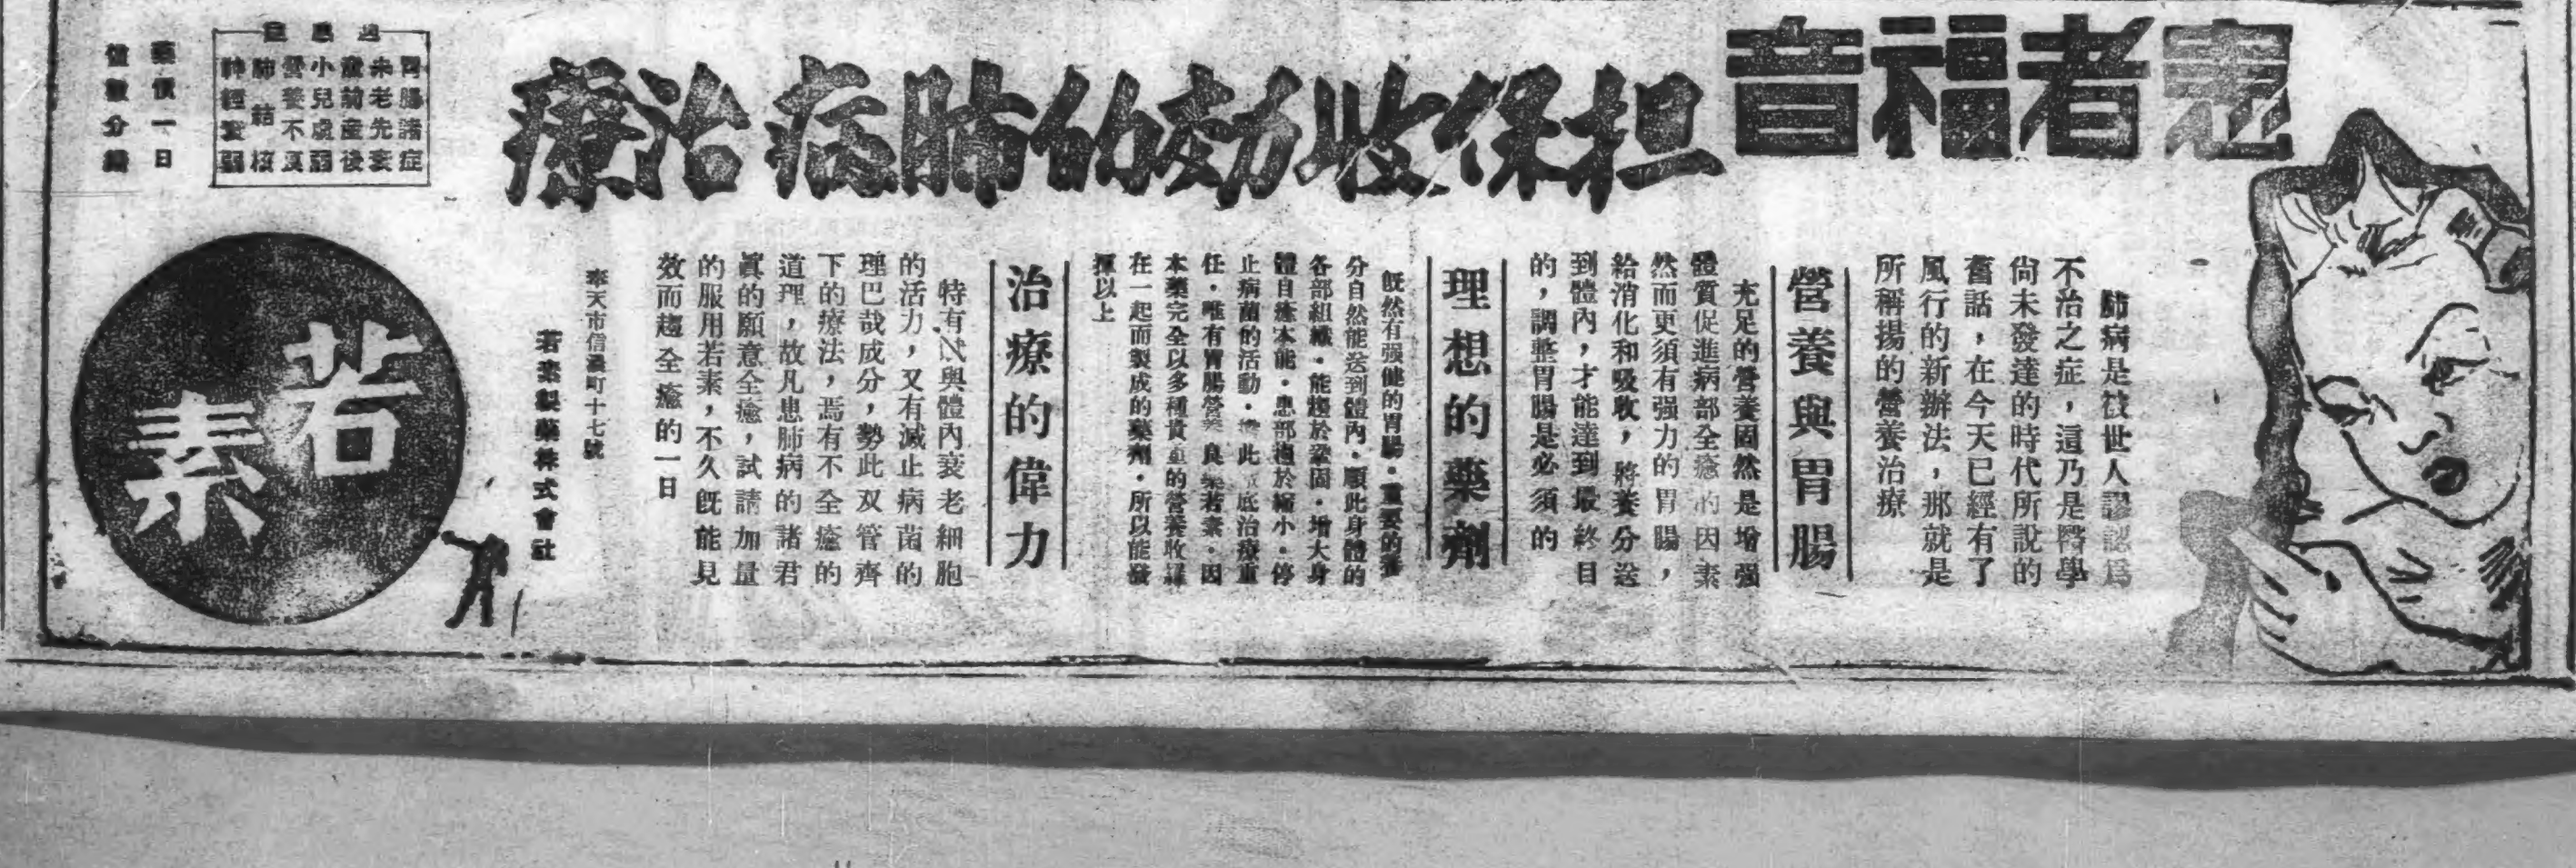 患者福音
担保收効的肺病治療
肺病是被世人謬認爲
不治之症，這乃是醫學
尙未發達的時代所說的
舊話，在今天已經有了
風行的新辦法，那就是
所稱揚的營養治療
營養與胃腸
充足的營養固然是增强
體質促進病部全癒的因素
然而更須有强力的胃腸，
給消化和吸收，將養分送
到體內，才能達到最終目
的，調整胃腸是必須的
理想的藥劑
既然有强健的胃腸・重要的養
分自然能送到體內・順此身體的
各部組織・能趨於鞏固・增大身
體自癒本能・患部趨於縮小・停
止病菌的活動・此底治療重
任・唯有胃腸營養良藥若素・因
本藥完全以多種貴重的營養收羅
在一起而製成的藥劑・所以能發
揮以上
治療的偉力
特有與體內衰老細胞
的活力，又有滅止病菌的
理巴哉成分，勢此双管齊
下的療法，焉有不全癒的
道理，故凡患肺病的諸君
眞的願意全癒，試請加量
的服用若素，不久既能見
效而趨全癒的一日
奉天市信濃町十七號
若素製藥株式會社
適應症
胃腸諸症
未老先衰
產前產後
小兒虛弱
營養不良
肺結核
神經衰弱
藥價一日
僅數分錢
若素